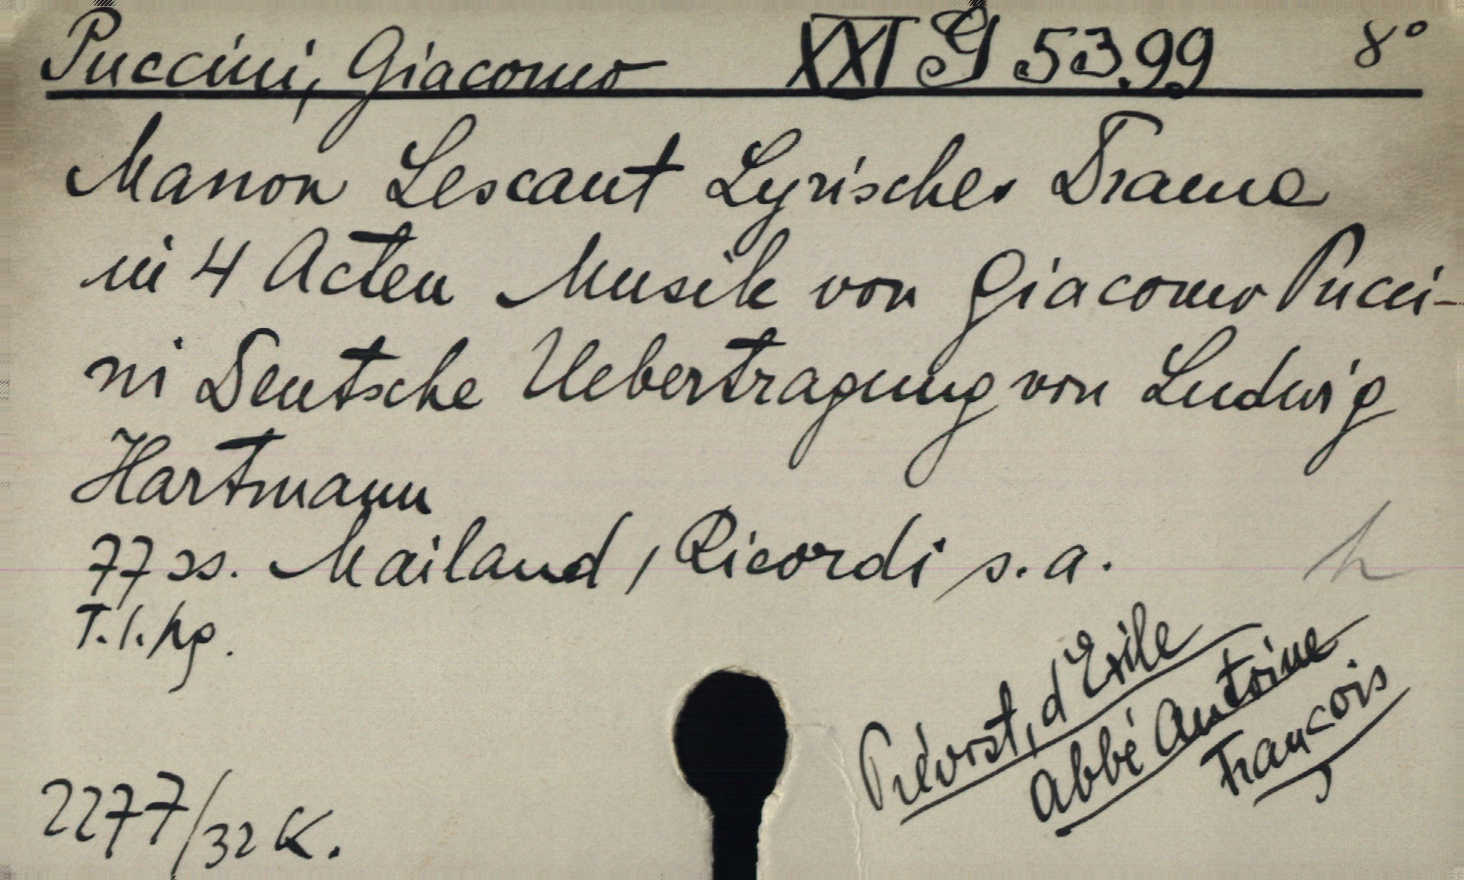 Puccini, Giacomo XXI G 53.99 8°
Manon Lescaut Lyrisches Drama
in 4 Acten Musik von Giacomo Pucci-
ni Deutsche Uebertragung von Ludwig
Hartmann
77 ss. Mailand, Ricordi s.a.
h
T.l.kg.
Prévost, d'Exile
Abbé Antoine
François
2277/32 K.